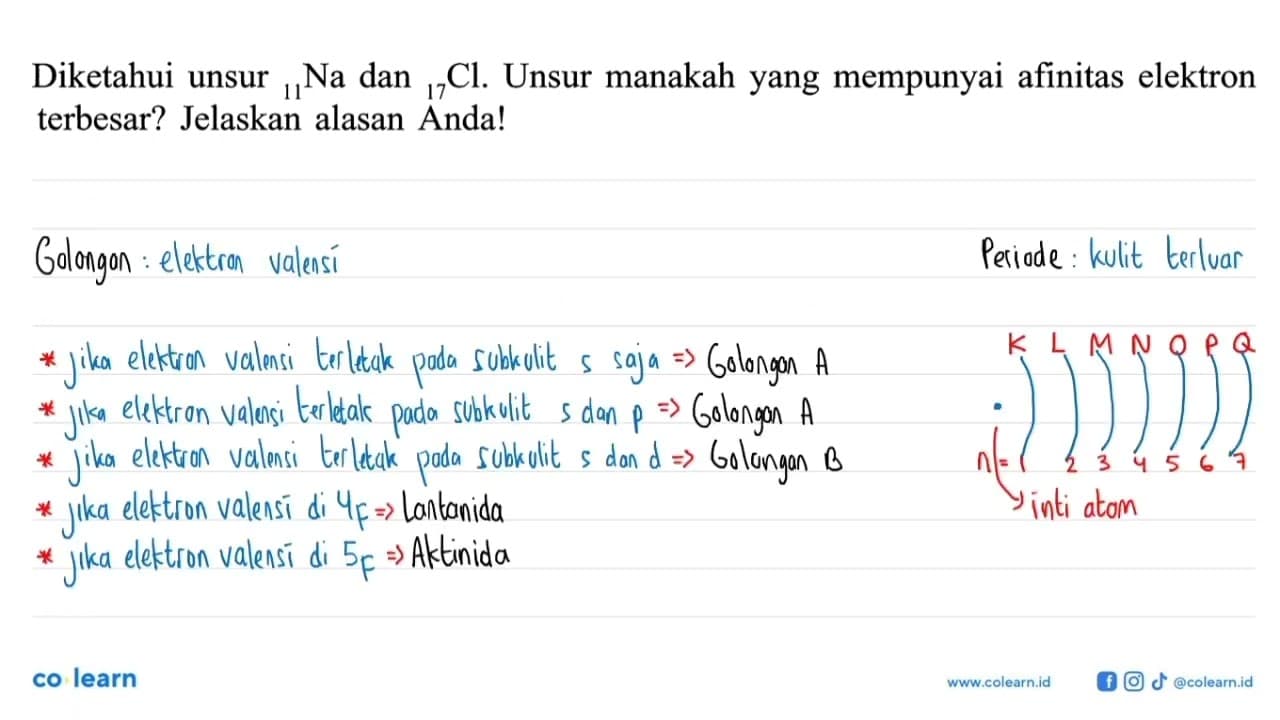 Diketahui unsur ₁₁Na dan ₁₇Cl. Unsur manakah yang mempunyai afinitas elektron
terbesar? Jelaskan alasan Anda!
Golongan : elektron valensi
Periode : kulit terluar
* jika elektron valensi terletak pada subkulit s saja => Golongan A
* jika elektron valensi terletak pada subkulit s dan p => Golongan A
* jika elektron valensi terletak pada subkulit s dan d => Golongan B
* jika elektron valensi di 4f => Lantanida
* jika elektron valensi di 5f => Aktinida
K L M N O P Q
n = 1 2 3 4 5 6 7
inti atom
co learn
www.colearn.id
@colearn.id